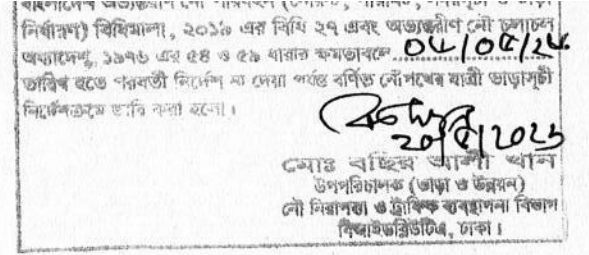 বাংলাদেশ অভ্যন্তরীণ নৌ
নির্ধারণ) বিধিমালা, ২০১৯ এর বিধি ২৭ এবং অভ্যন্তরীণ নৌ চলাচল
অধ্যাদেশ, ১৯৭৬ এর ৫৪ ও ৫৯ ধারার ক্ষমতাবলে
তারিখ হতে পরবর্তী নির্দেশ না দেয়া পর্যন্ত বর্ণিত নৌপথের যাত্রী ভাড়াসূচী
নির্দেশক্রমে জারি করা হলো।
মোঃ বছির আলী খান
উপপরিচালক (ভাড়া ও উন্নয়ন)
নৌ নিরাপত্তা ও ট্রাফিক ব্যবস্থাপনা বিভাগ
বিআইডব্লিউটিএ, ঢাকা।